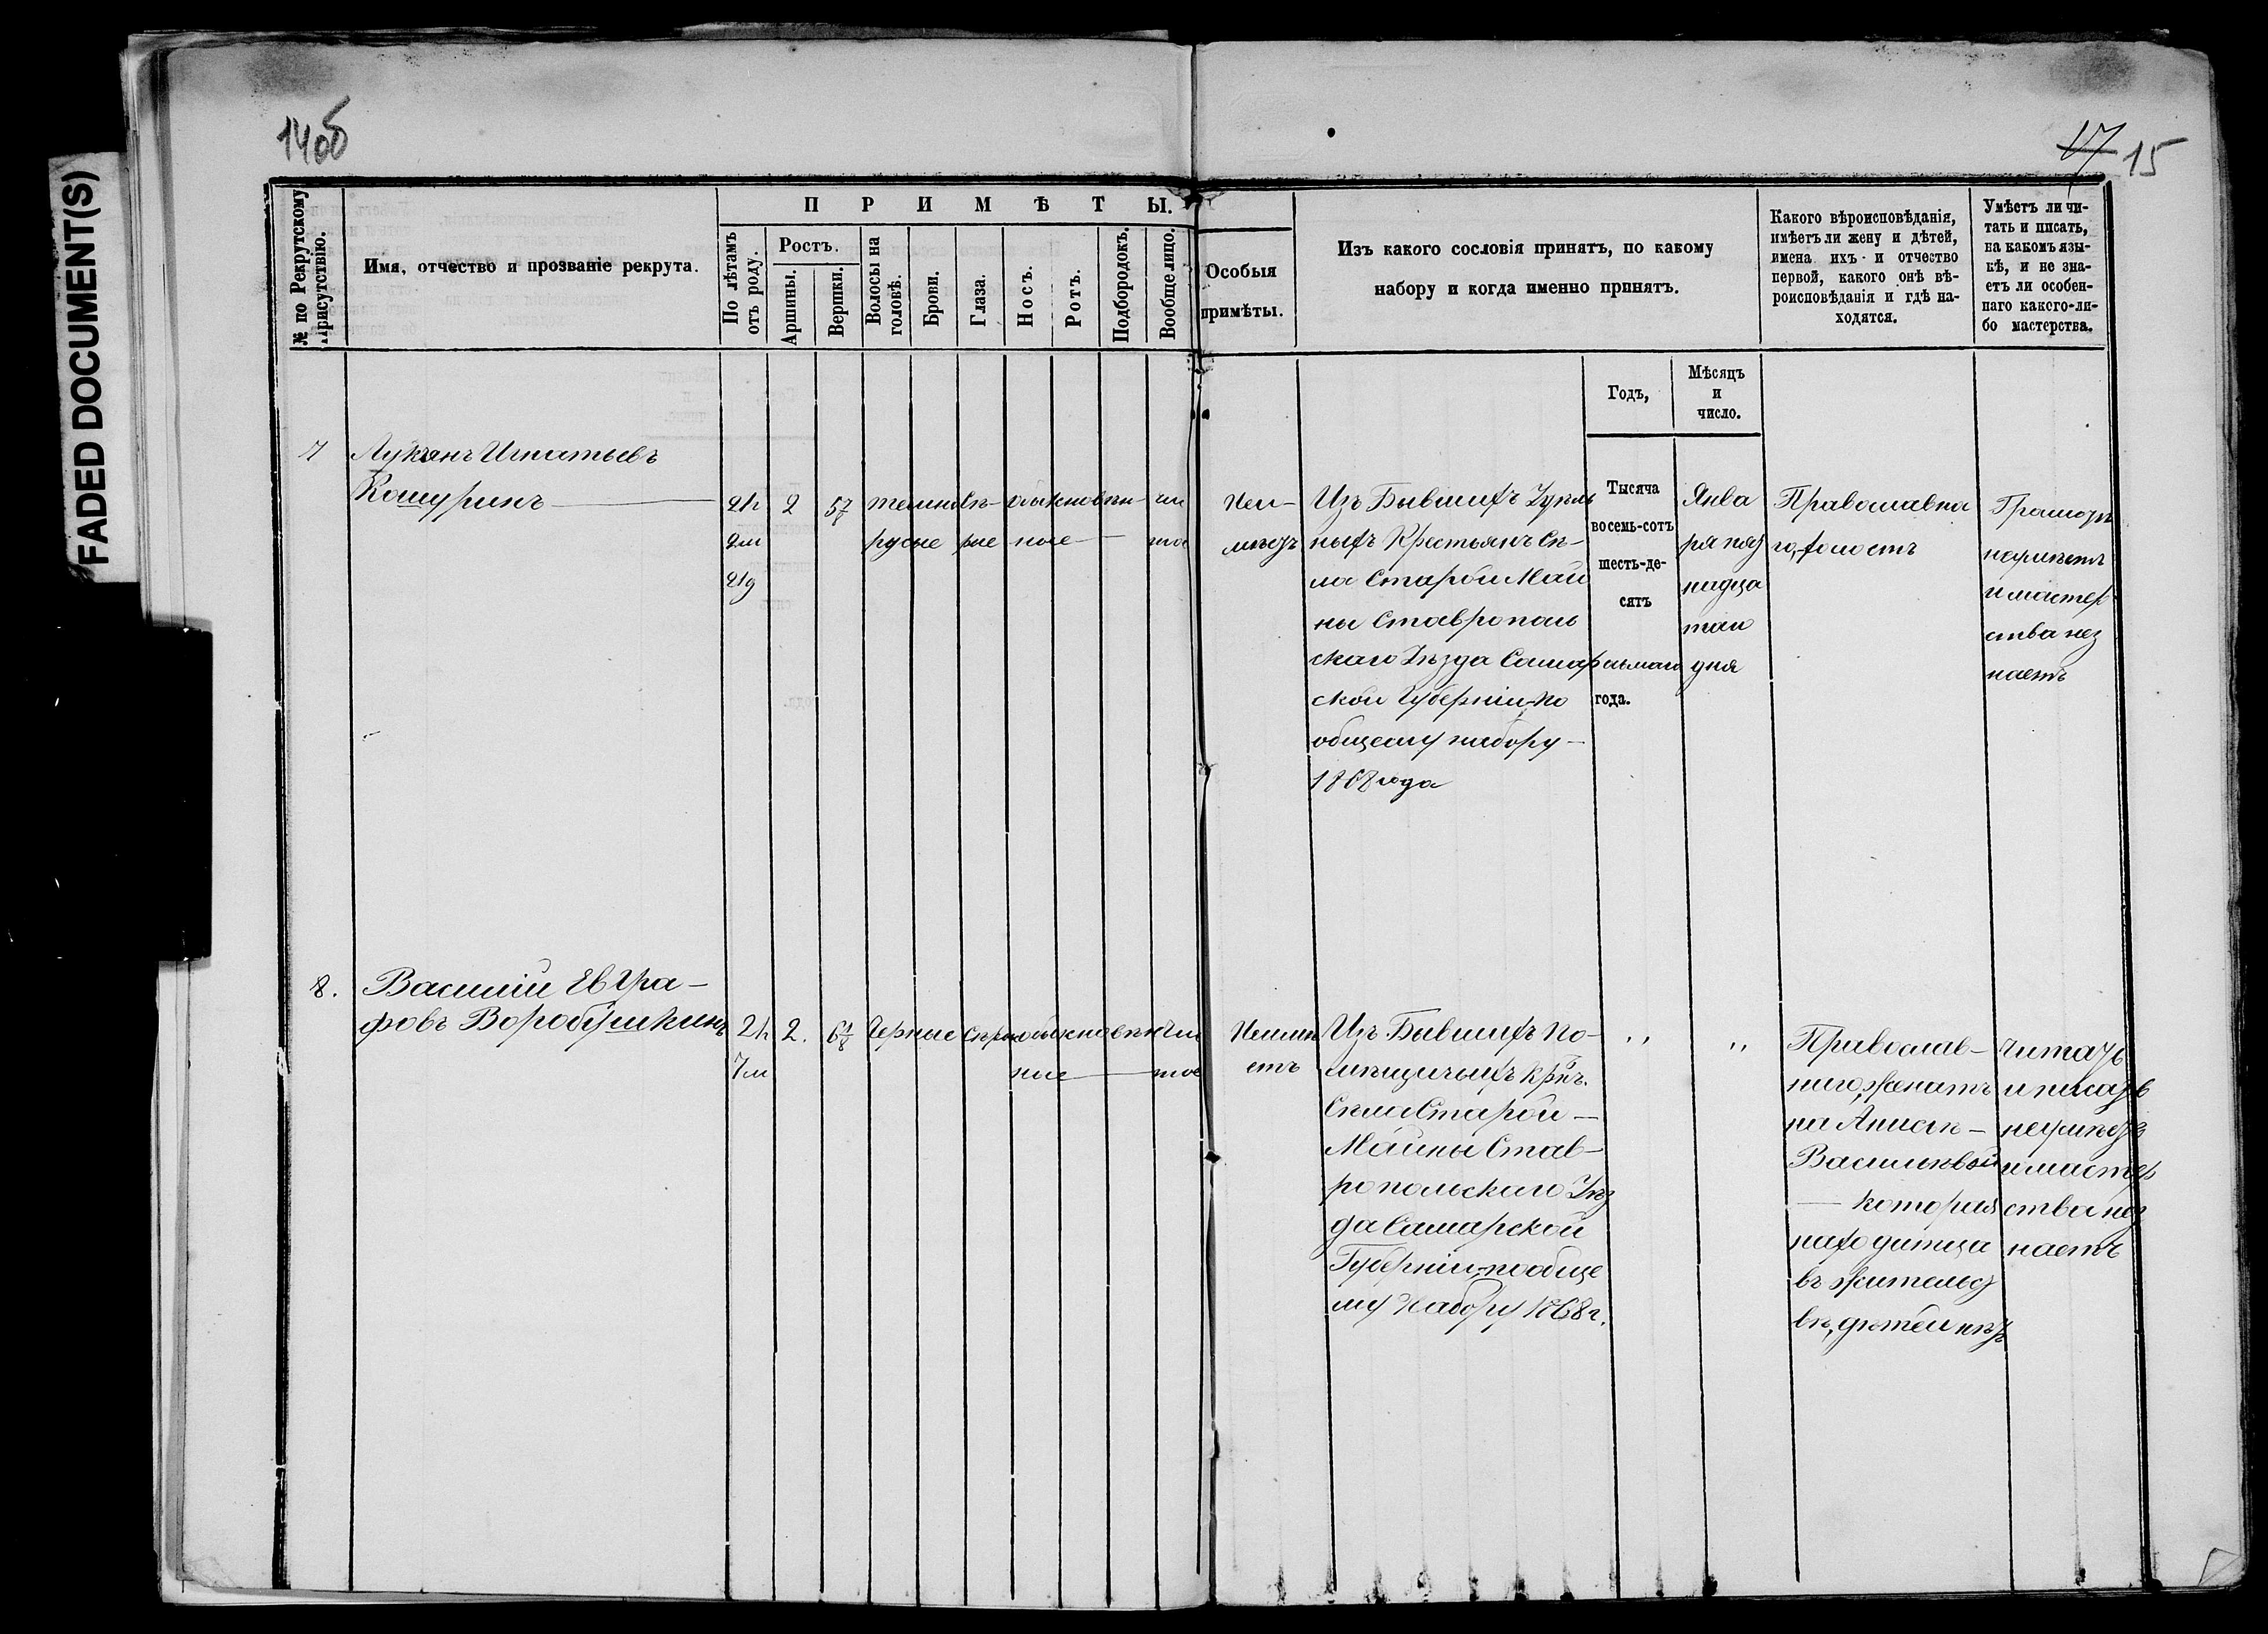 14об
17 15
FADED DOCUMENT(S)
№ по Рекрутскому
Присутствію.
Имя, отчество и прозваніе рекрута.
ПРИМѢТЫ.
По лѣтамъ
отъ роду.
Ростъ.
Аршины.
Вершки.
Волосы на
головѣ.
Брови.
Глаза.
Носъ.
Ротъ.
Подбородокъ.
Вообще лицо.
Особыя
примѣты.
Изъ какого сословія принятъ, по какому
набору и когда именно принятъ.
Какого вѣроисповѣданія,
имѣетъ ли жену и дѣтей,
имена ихъ и отчество
первой, какого онѣ вѣ-
роисповѣданія и гдѣ на-
ходятся.
Умѣетъ ли чи-
тать и писать,
на какомъ язы-
кѣ, и не зна-
етъ ли особен-
наго какого-ли-
бо мастерства.
Годъ,
Мѣсяцъ
и
число.
7
Лукянъ Игнатьевъ
Кошуринъ
2 5 7/8
темно
русые
сѣ-
рые
обыкновен-
ные
чи
стое
Изъ Бывшихъ
ныхъ Крестьянъ Се-
ла Старой Май
ны Ставрополь
скаго Уѣзда Самар
ской Губерніи, по
общему набору
1868 года
Тысяча
восемь-сотъ
шесть-де-
сятъ
года.
Янва
ря
надца
таго
дня
Православна
го, холостъ
Грамотѣ
неумѣетъ
и мастер
ства нез
наетъ
8.
Василій Евгра-
фовъ Воробушкинъ
2. 6 1/8
Черные
сѣрые
обыкновен
ные
чи
стое
Неимѣ
етъ
Изъ Бывшихъ По-
мѣщичьихъ Крнъ.
Села Старой
Майны Став-
ропольскаго Уѣз
да Самарской
Губерніи, по обще
му Набору 1868 г.
,, ,,
Православ-
наго, женатъ
на Анисьѣ
Васильевой
которая
находитца
въ жительст
вѣ, дѣтей нѣтъ
Читать
и писать
неумѣетъ
и мастер
ства нез
наетъ